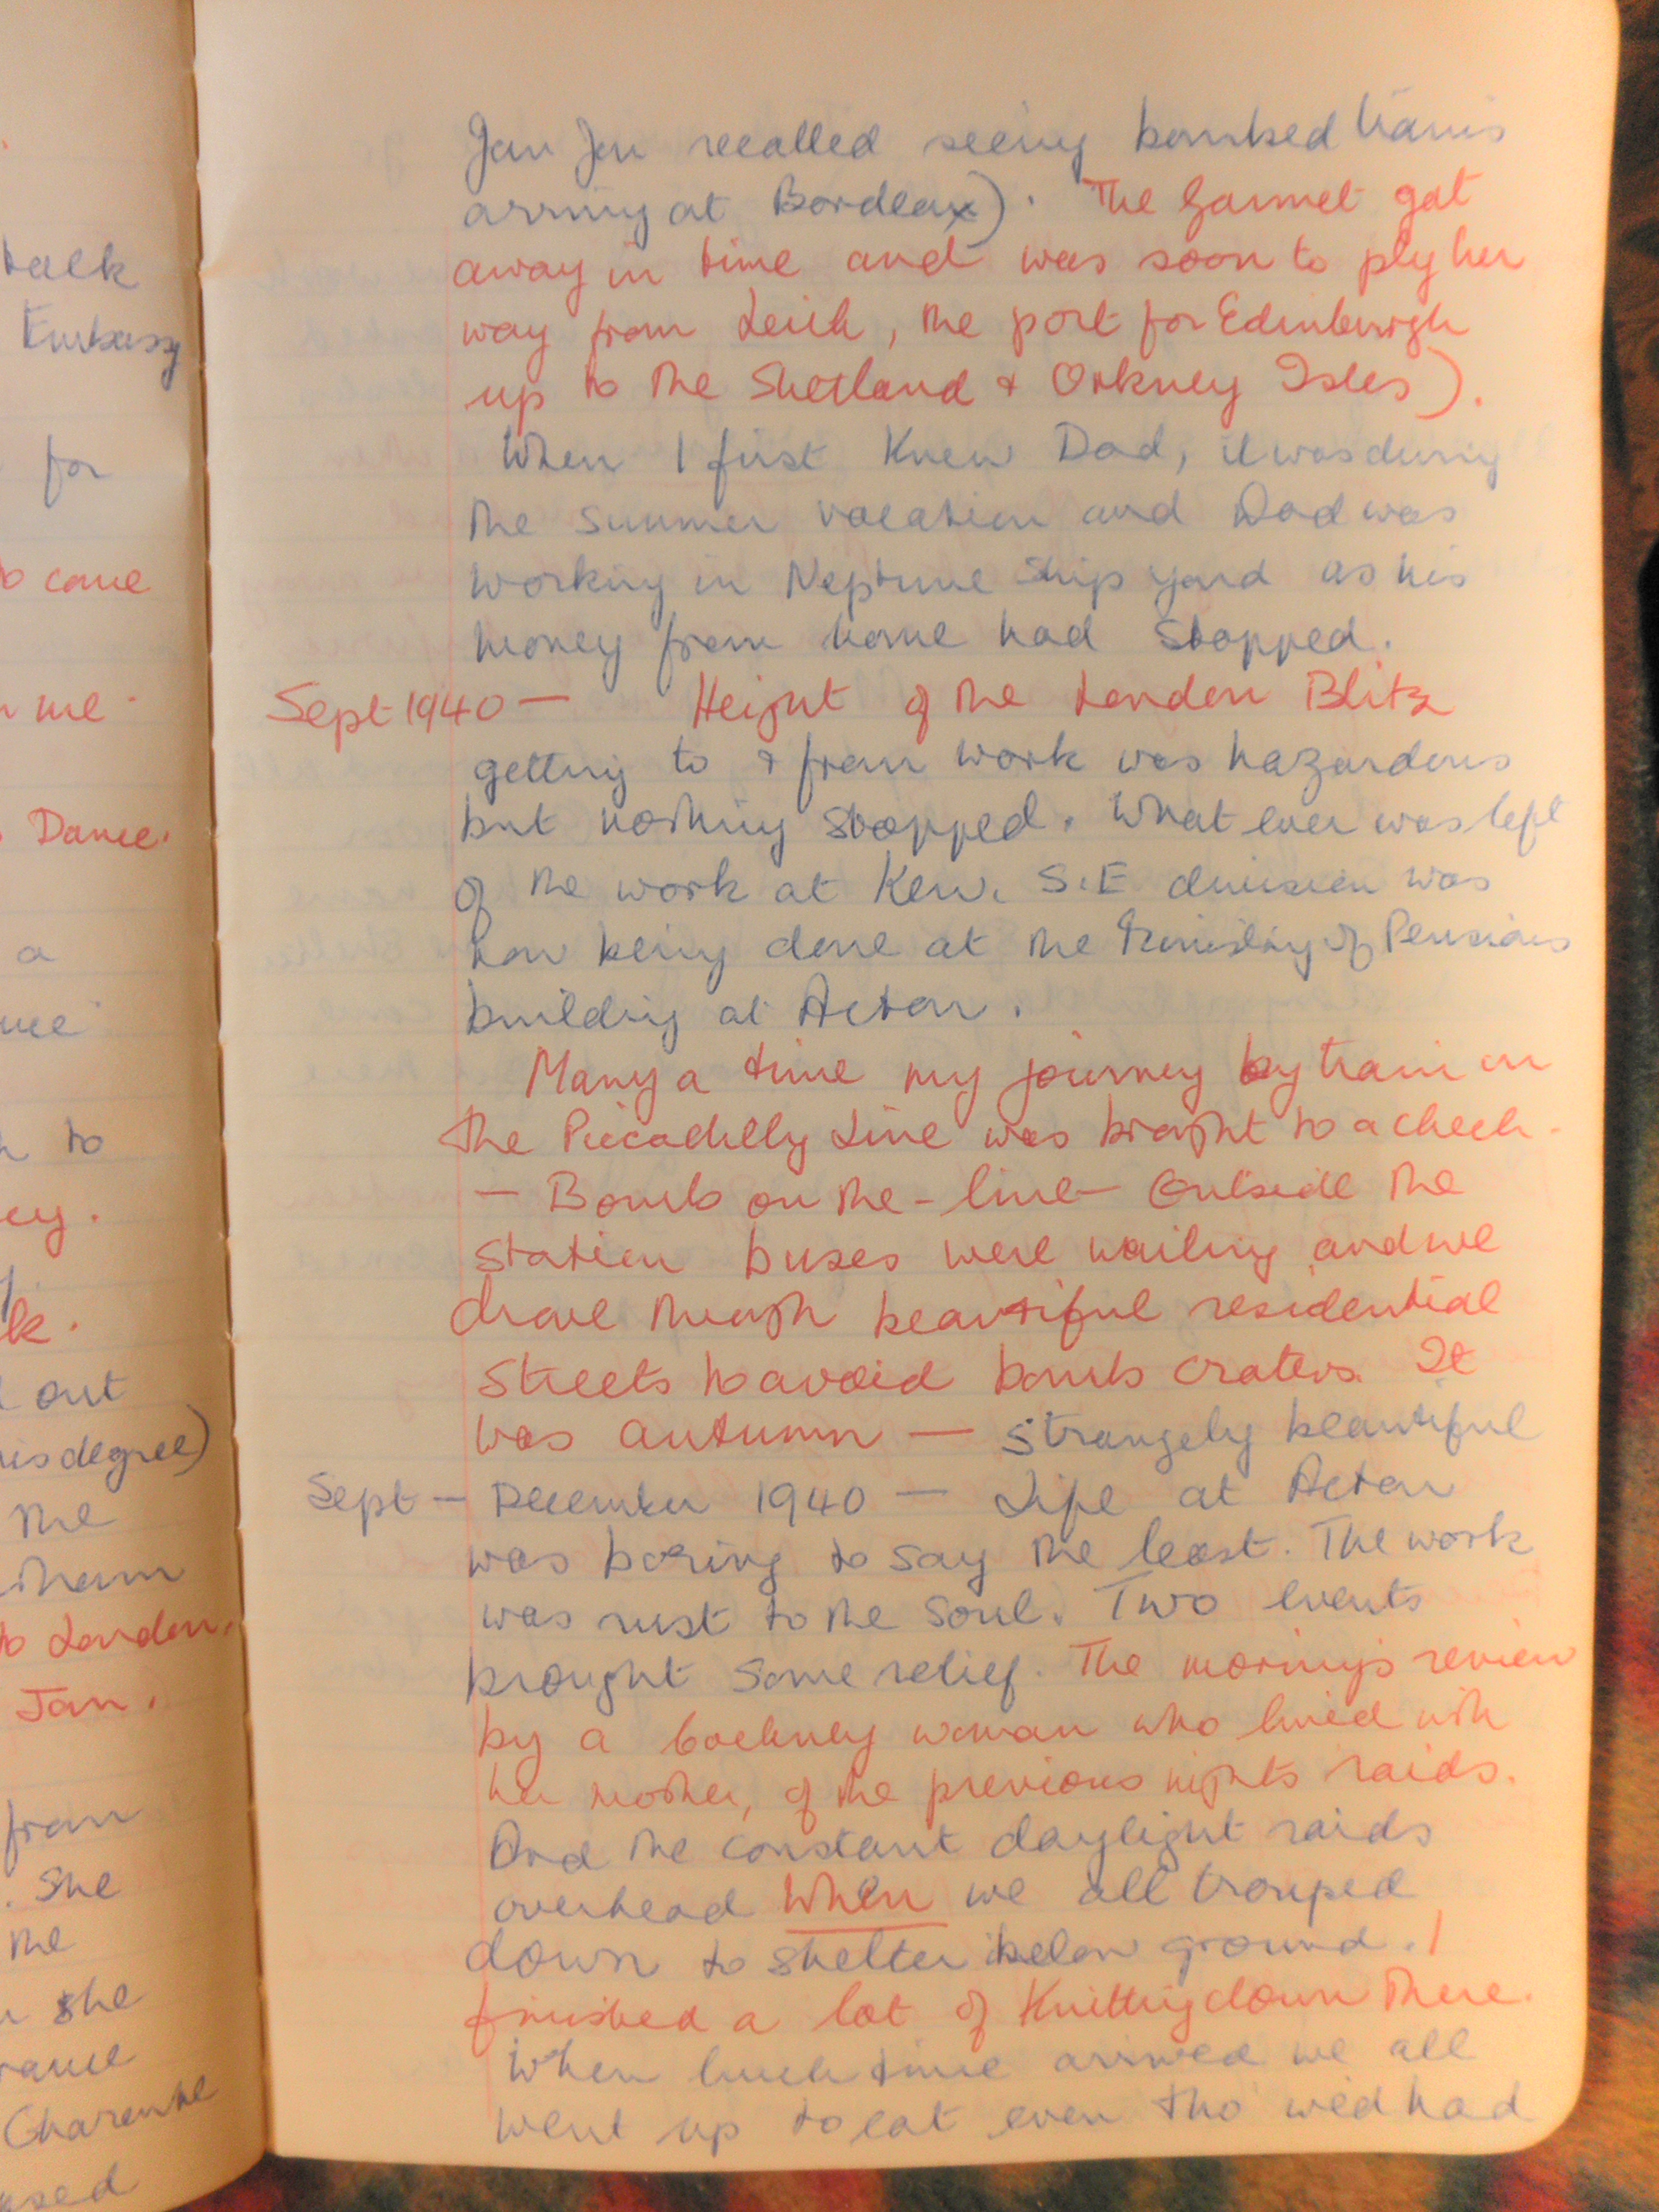 talk
Embassy
for
to come
me
Dance.
a
to
k.
out
his degree)
the
to London.
Jan.
from
. She
the
she
Charente
Jan Jan recalled seeing bombed trains
arriving at Bordeax). The Garmet got
away in time and was soon to ply her
way from Leith, the port for Edinburgh
up to the Shetland & Orkney Isles).
When I first Knew Dad, it was during
the summer vacation and Dad was
working in Neptune Ship yard as his
money from home had stopped.
Sept 1940 — Height of the London Blitz
getting to & from work was hazardous
but nothing stopped. What ever was left
of the work at Kew. S.E division was
now being done at the Ministry of Pensions
building at Acton.
Many a time my journey by train on
the Piccadilly Line was brought to a check.
— Bomb on the - line — Outside the
station buses were waiting and we
drove through beautiful residential
streets to avoid bomb craters. It
was autumn — strangely beautiful
Sept — December 1940 — Life at Acton
was boring to say the least. The work
was rust to the soul. Two events
brought some relief. The morning's review
by a Cockney woman who lived with
her mother, of the previous nights raids.
And the constant daylight raids
overhead when we all trouped
down to shelter below ground. I
finished a lot of Knitting down there.
When lunch time arrived we all
went up to eat even tho' we'd had